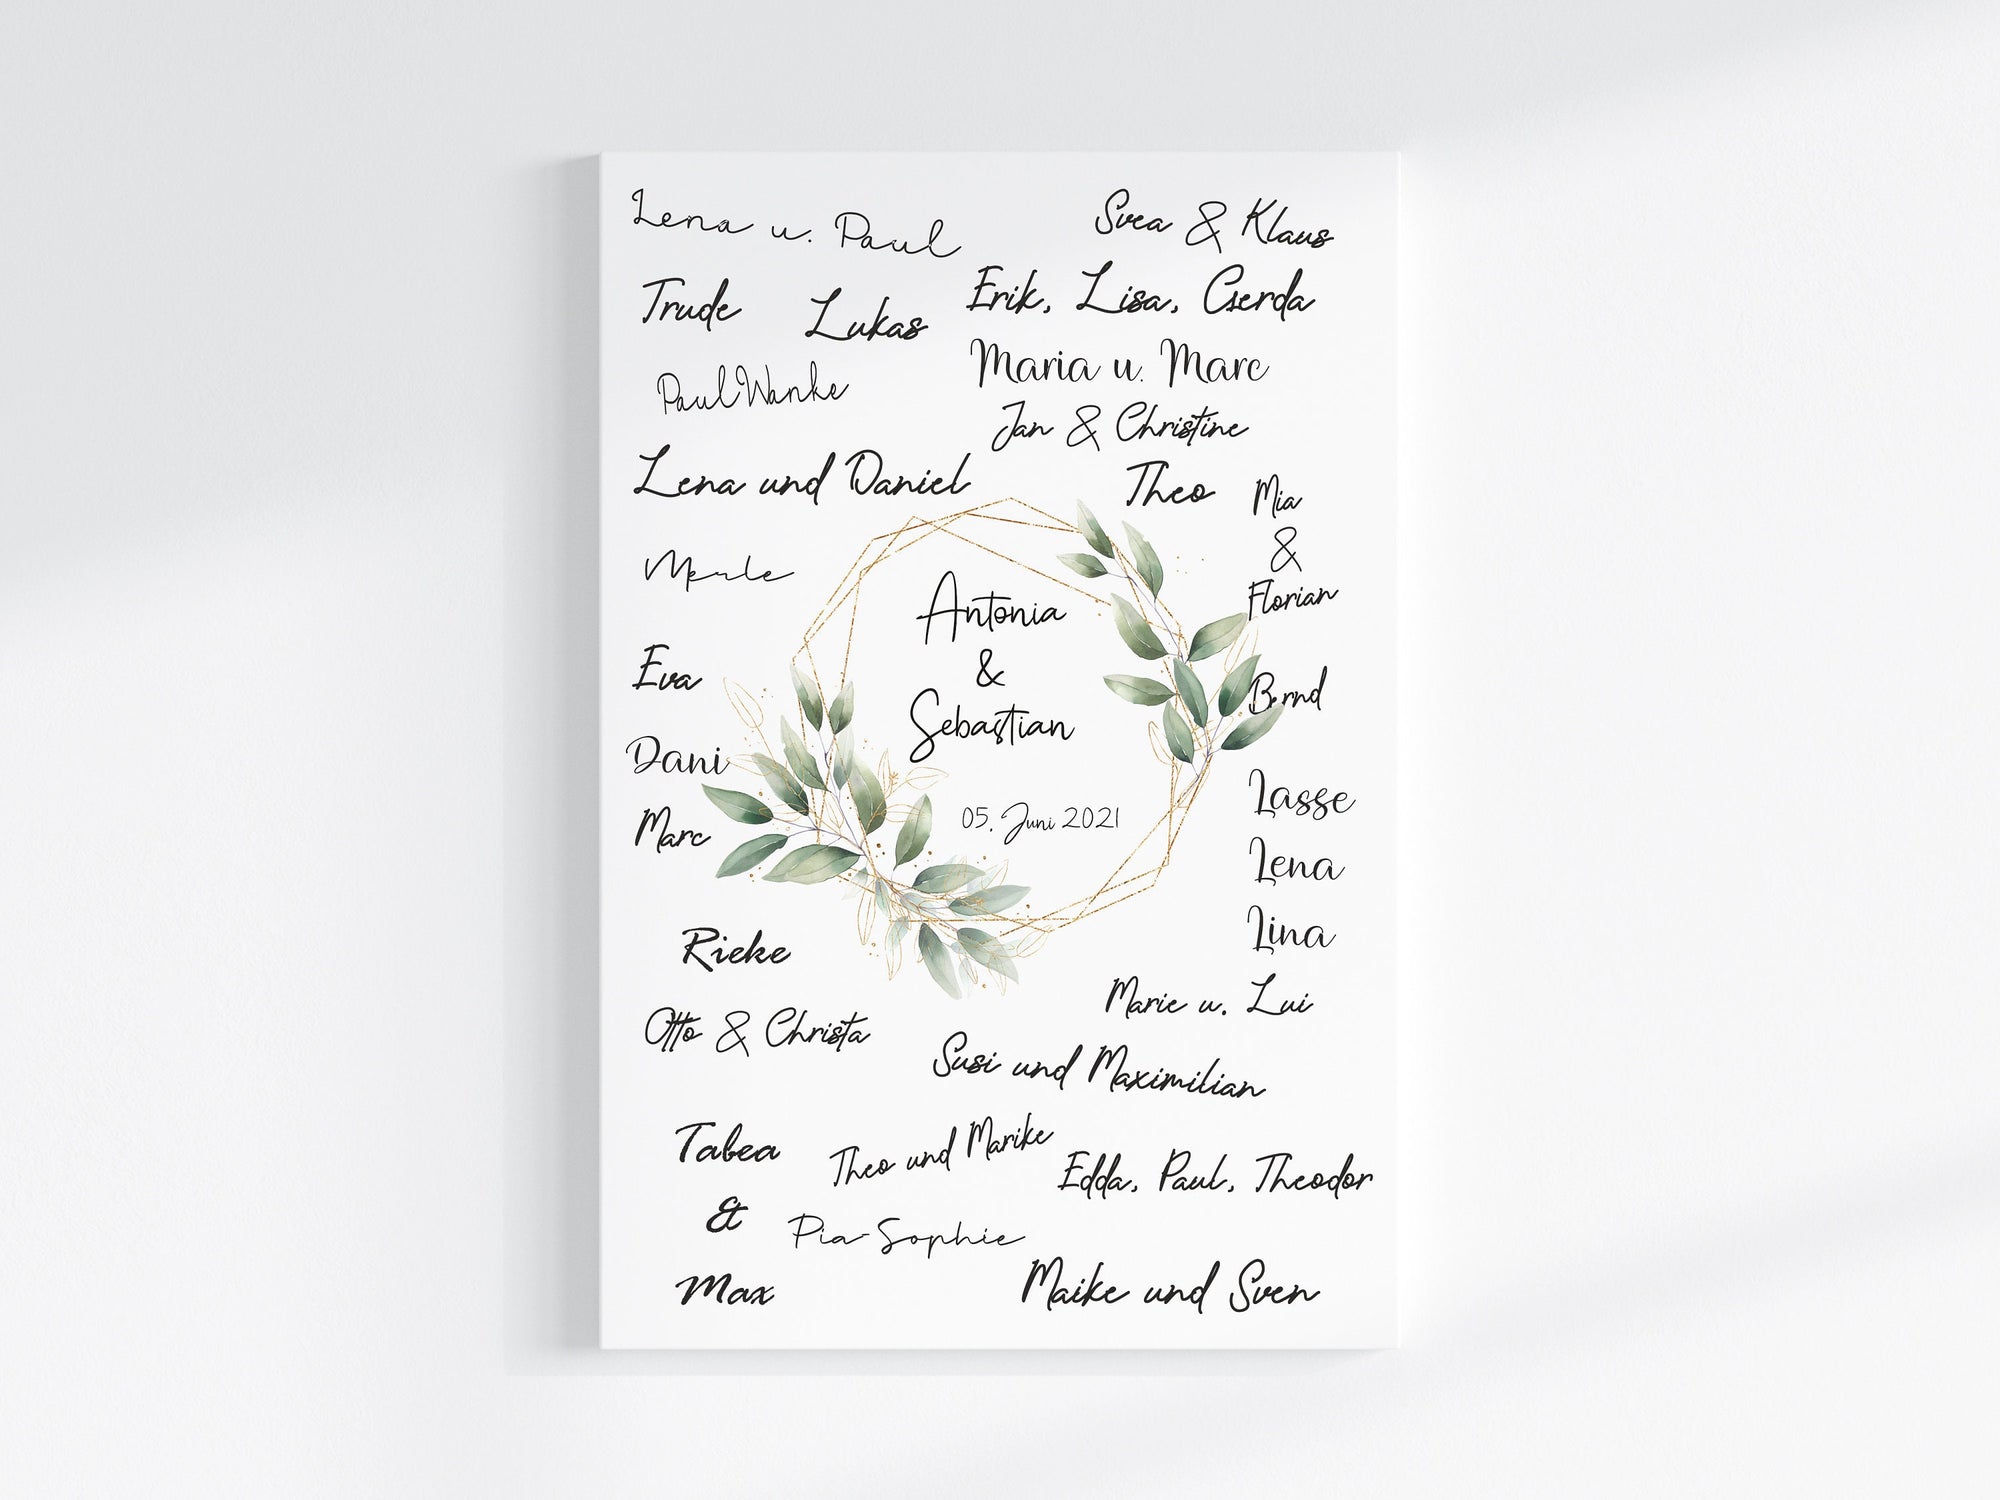 Lena u. Paul
Svea & Klaus
Trude
Lukas
Erik, Lisa, Gerda
Maria u. Marc
Paul Wanke
Jan & Christine
Lena und Daniel
Theo
Mia
&
Florian
Merle
Antonia
&
Sebastian
05. Juni 2021
Eva
Bernd
Dani
Marc
Lasse
Lena
Lina
Rieke
Marie u. Lui
Otto & Christa
Susi und Maximilian
Tabea
&
Max
Theo und Marike
Edda, Paul, Theodor
Pia-Sophie
Maike und Sven